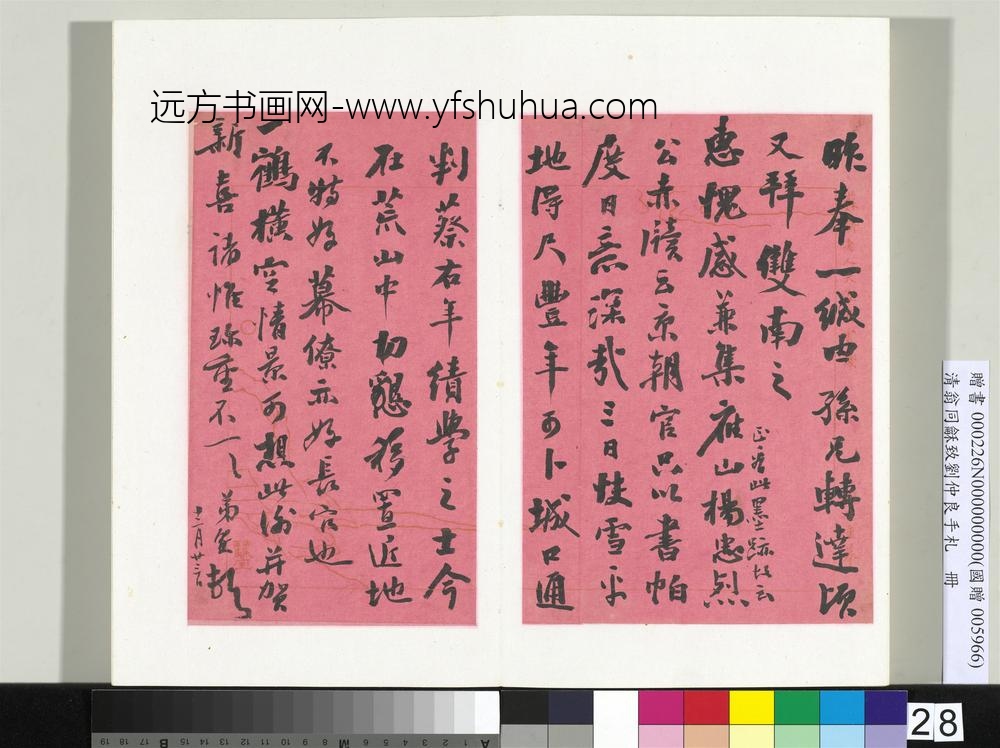 远方书画网-www.yfshuhua.com
昨奉一緘由孫兄轉達頃
又拜雙南之
惠愧感兼集 椒山楊忠烈
正看此墨跡故云
公赤牘云京朝官只以書帕
度日意深哉三日快雪平
地得尺豐年可卜城口通
判蔡右年績學之士今
在荒山中切懇移置近地
不特好幕僚亦好長官也
一鶴橫空情景可想此謝并賀
新喜諸惟珍重不一一 弟
十二月廿三日
贈書 000226N000000000(國贈 005966)
清翁同龢致劉仲良手札 冊
28
19 18 17 16 15 14 13 12 11 10 9 8 7 6 5 4 3 2 1
B
M
A